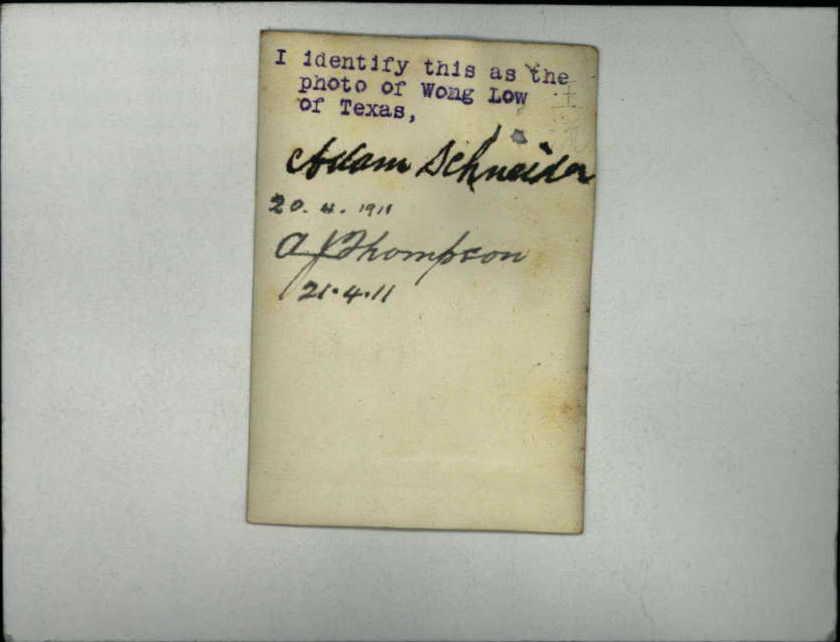 I identify this as the
photo of Wong Low
of Texas,
Adam Schneider
20.4.1911
A J Thompson
21.4.11